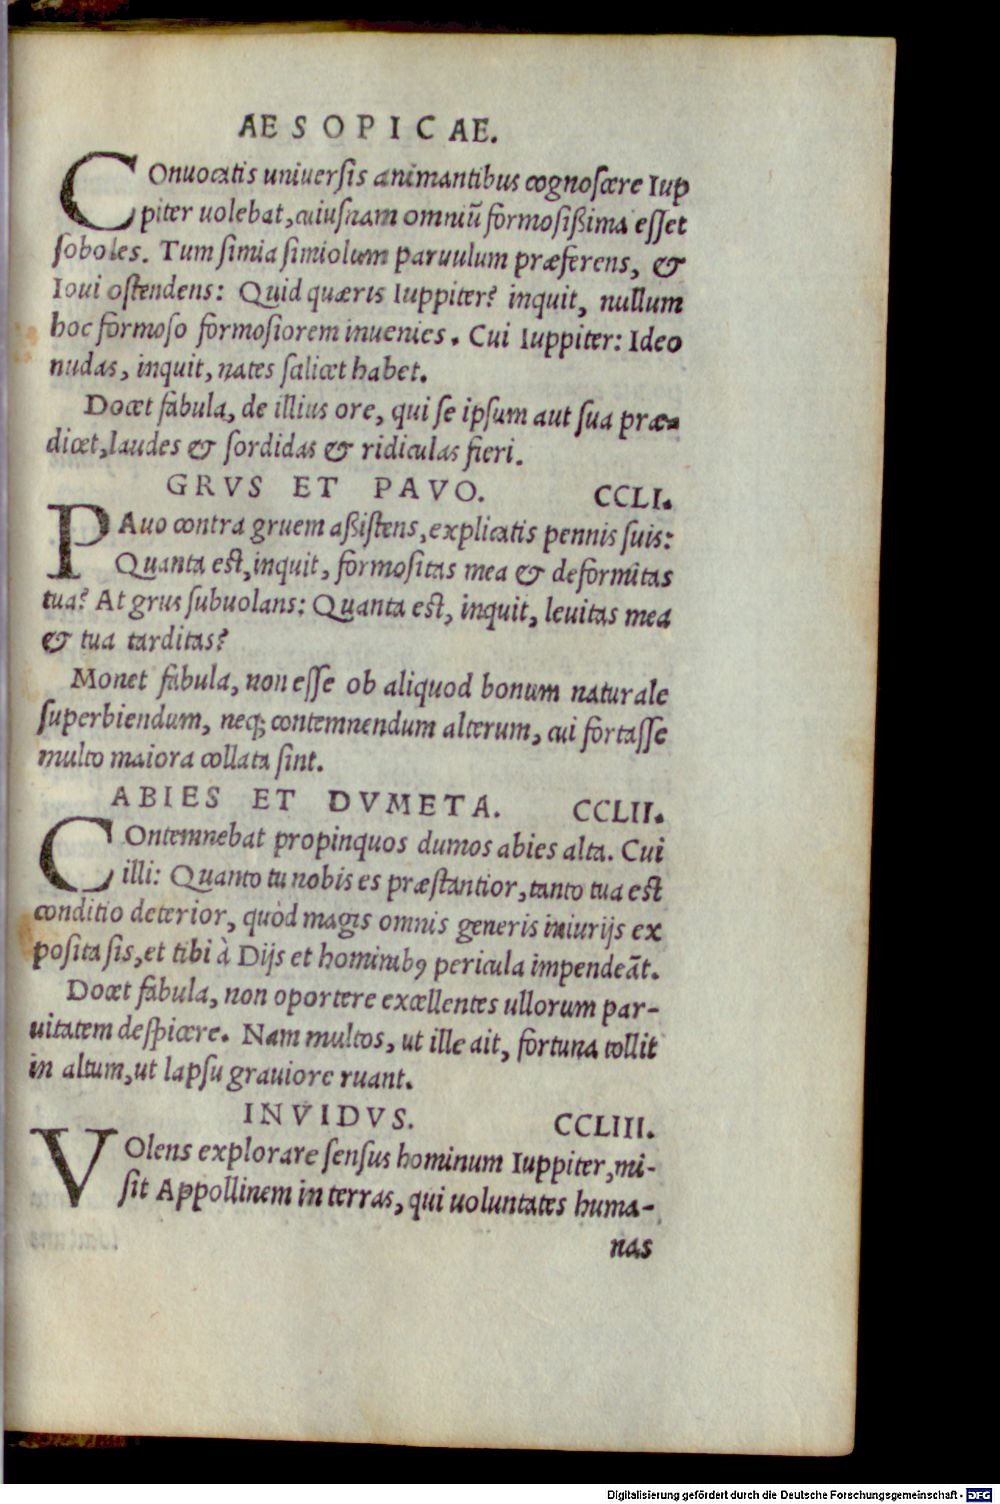 AESOPICAE.
COnuocatis uniuersis animantibus cognoscere Iup
piter uolebat, cuiusnam omniũ formosißima esset
soboles. Tum simia simiolum paruulum præferens, &
Ioui ostendens: Quid quæris Iuppiter? inquit, nullum
hoc formoso formosiorem inuenies. Cui Iuppiter: Ideo
nudas, inquit, nates scilicet habet.
Docet fabula, de illius ore, qui se ipsum aut sua præ-
dicet, laudes & sordidas & ridiculas fieri.
GRVS ET PAVO. CCLI.
PAuo contra gruem aßistens, explicatis pennis suis:
Quanta est, inquit, formositas mea & deformitas
tua? At grus subuolans: Quanta est, inquit, leuitas mea
& tua tarditas?
Monet fabula, non esse ob aliquod bonum naturale
superbiendum, neq; contemnendum alterum, cui fortasse
multo maiora collata sint.
ABIES ET DVMETA. CCLII.
COntemnebat propinquos dumos abies alta. Cui
illi: Quanto tu nobis es præstantior, tanto tua est
conditio deterior, quòd magis omnis generis iniurijs ex
posita sis, et tibi à Dijs et hominibꝰ pericula impendeãt.
Docet fabula, non oportere excellentes ullorum par-
uitatem despicere. Nam multos, ut ille ait, fortuna tollit
in altum, ut lapsu grauiore ruant.
INVIDVS. CCLIII.
VOlens explorare sensus hominum Iuppiter, mi-
sit Appollinem in terras, qui uoluntates huma-
nas
Digitalisierung gefördert durch die Deutsche Forschungsgemeinschaft - DFG